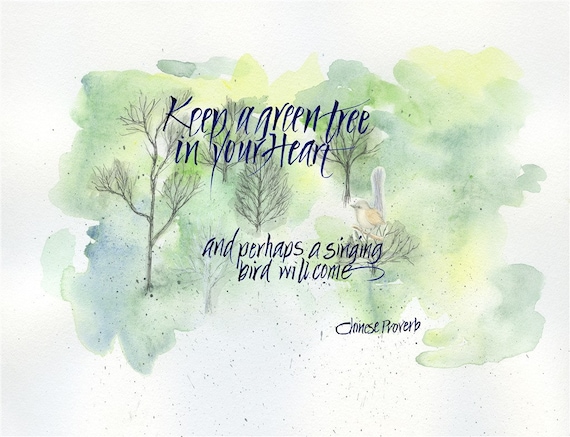 Keep a green tree
in your Heart
and perhaps a singing
bird will come
Chinese Proverb